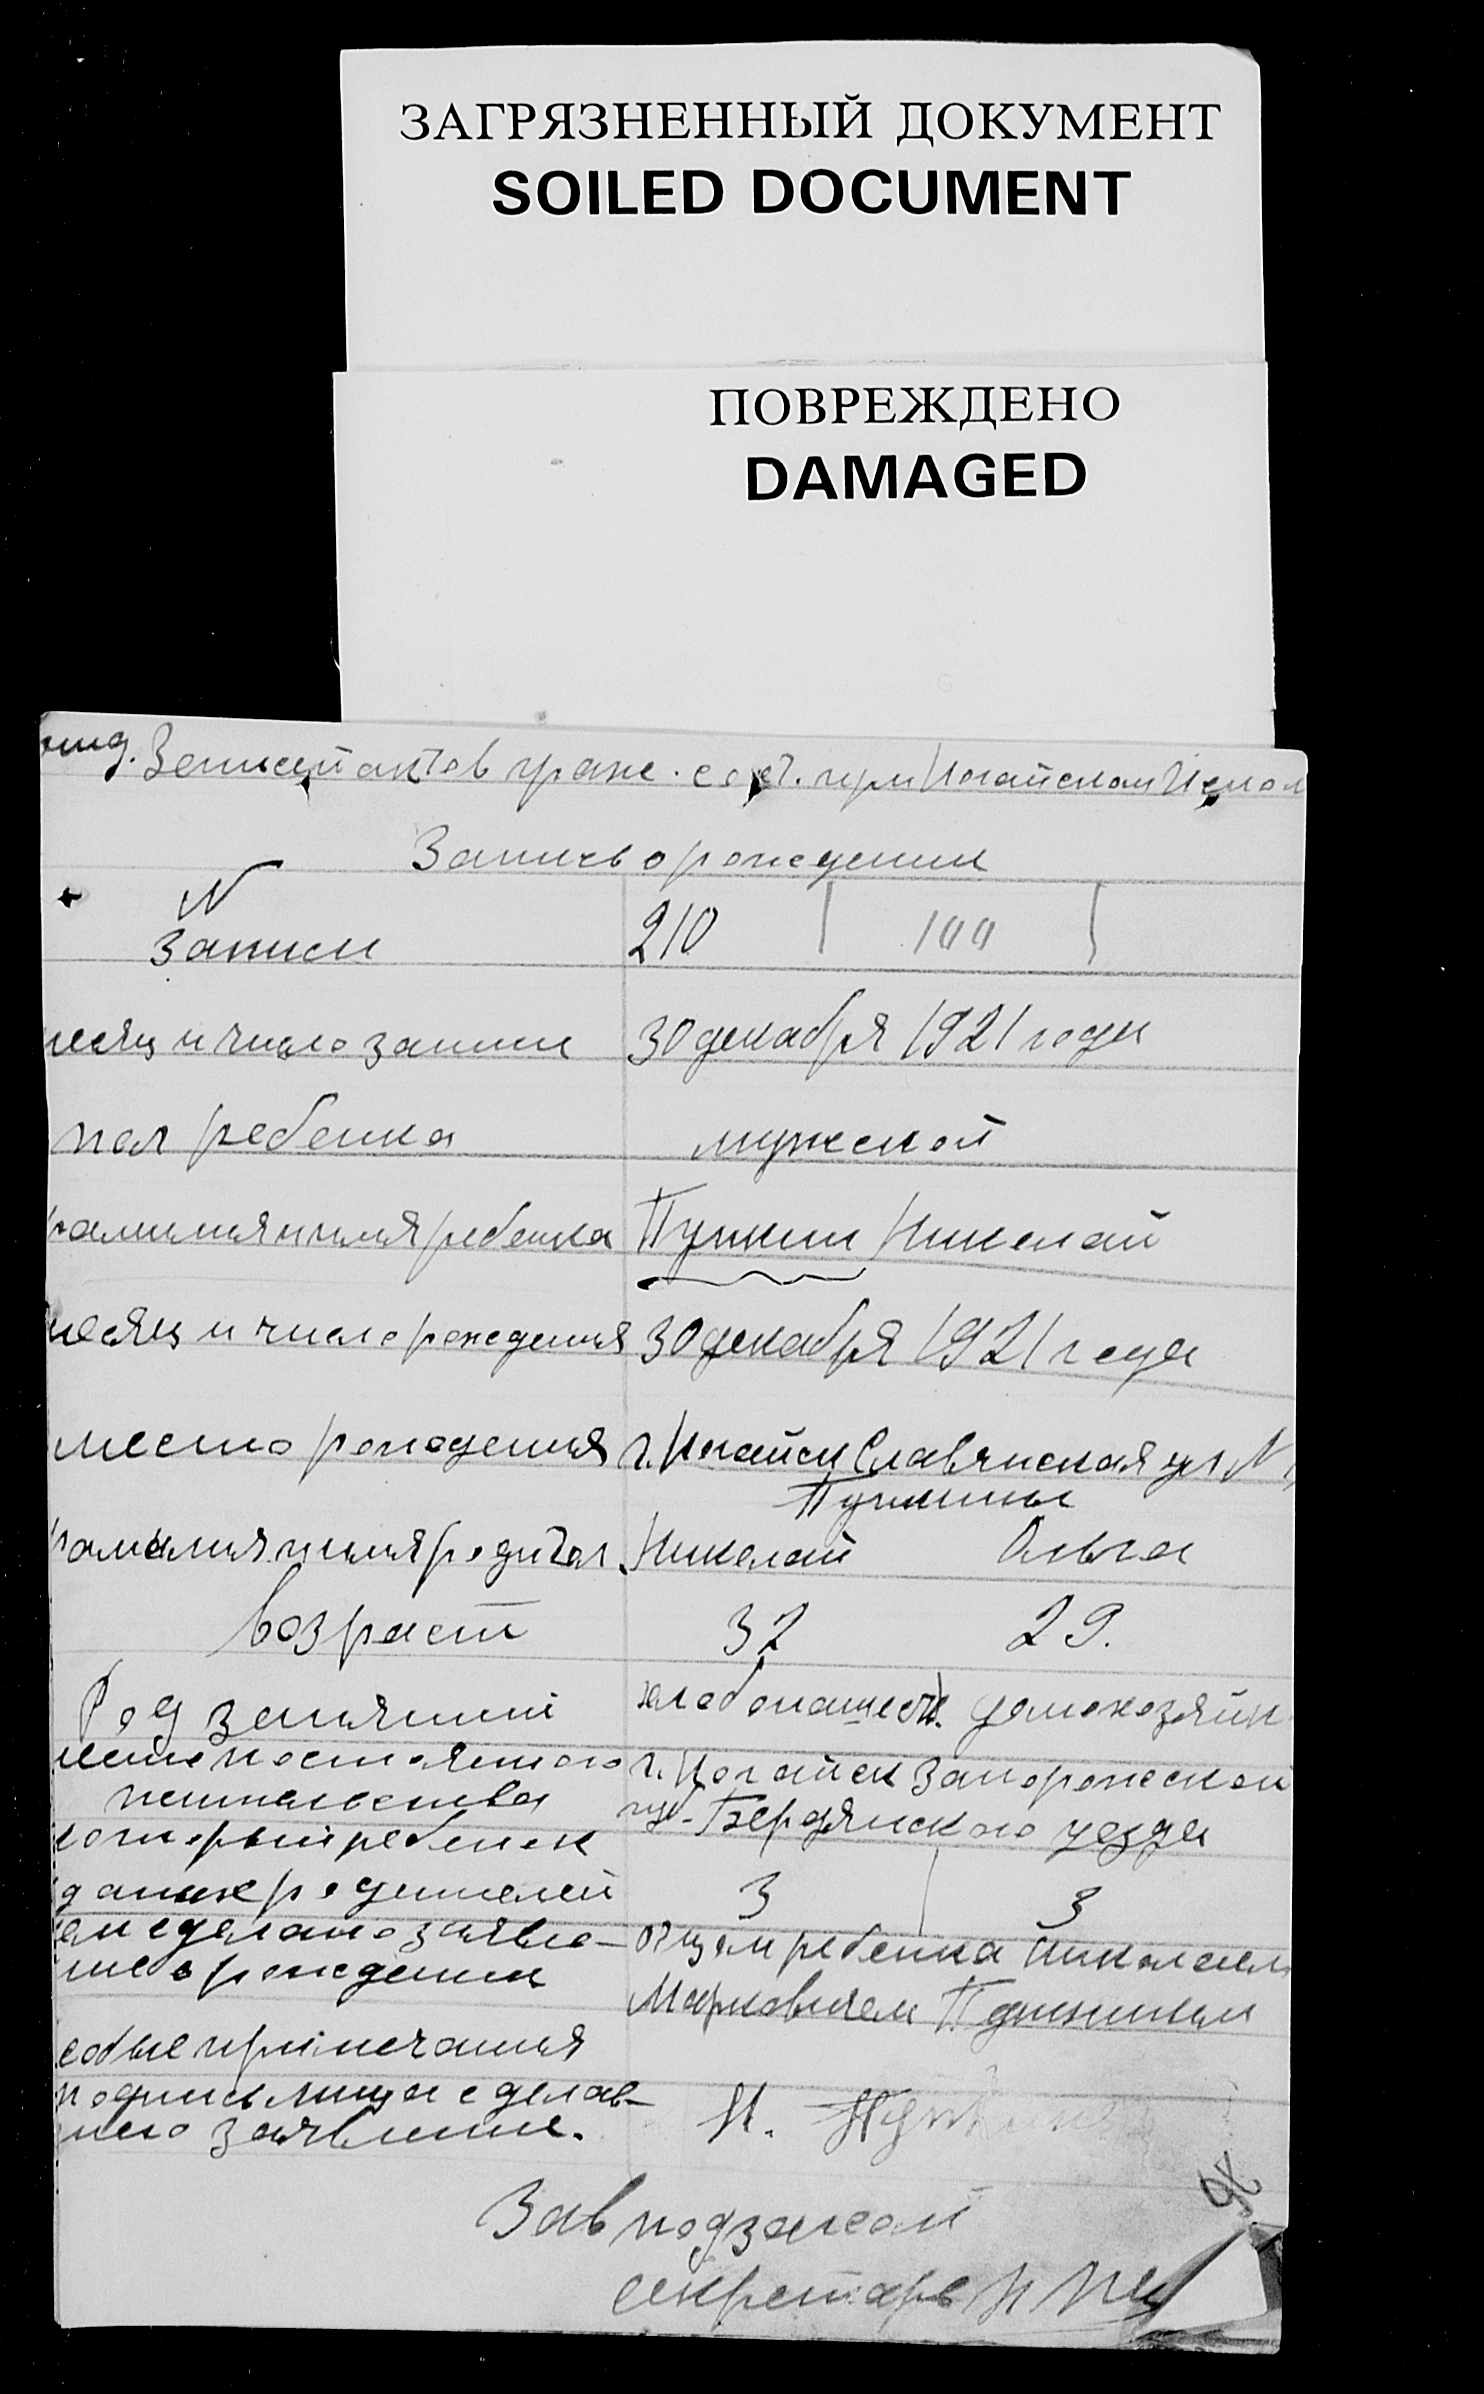 ЗАГРЯЗНЕННЫЙ ДОКУМЕНТ
SOILED DOCUMENT
ПОВРЕЖДЕНО
DAMAGED
Записей актов граж. сост. при Ногайском Испол
Запись о рождении
N 210
записи
месяц и число записи 30 декабря 1921 года
пол ребенка мужской
фамилия и имя ребенка Пункин Николай
месяц и число рождения 30 декабря 1921 года
место рождения г. Ногайск Славянская ул N
фамилия и имя родител. Николай Ольга
возраст 32 29.
Род занятий хлебопашеств. домохозяйк
место постоянного г. Ногайск Запорожской
жительства губ. Бердянского уезда
который ребенок
данных родителей 3 3
кем сделано заявле- отцем ребенка Николаем
ние о рождении Марковичем
особые примечания
подпись лица сделав- Н.
шего заявление.
Зав подзагсом
секретарь